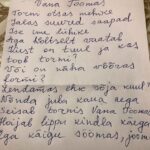 Vana Toomas
Torni otsas mehike
Jalas suured saapad
Ise ime liikuke
Aga kõikjalt vaatab
Kust on tuul ja kas
toob tormi?
Või on näha võõras
lormi?
Lendamas ehk mõja kuul?
Nõnda juba kaua aega
seisab tornis Vana Toomas
Hoijab lippu kindla käega
ega käigu söömas, joomas